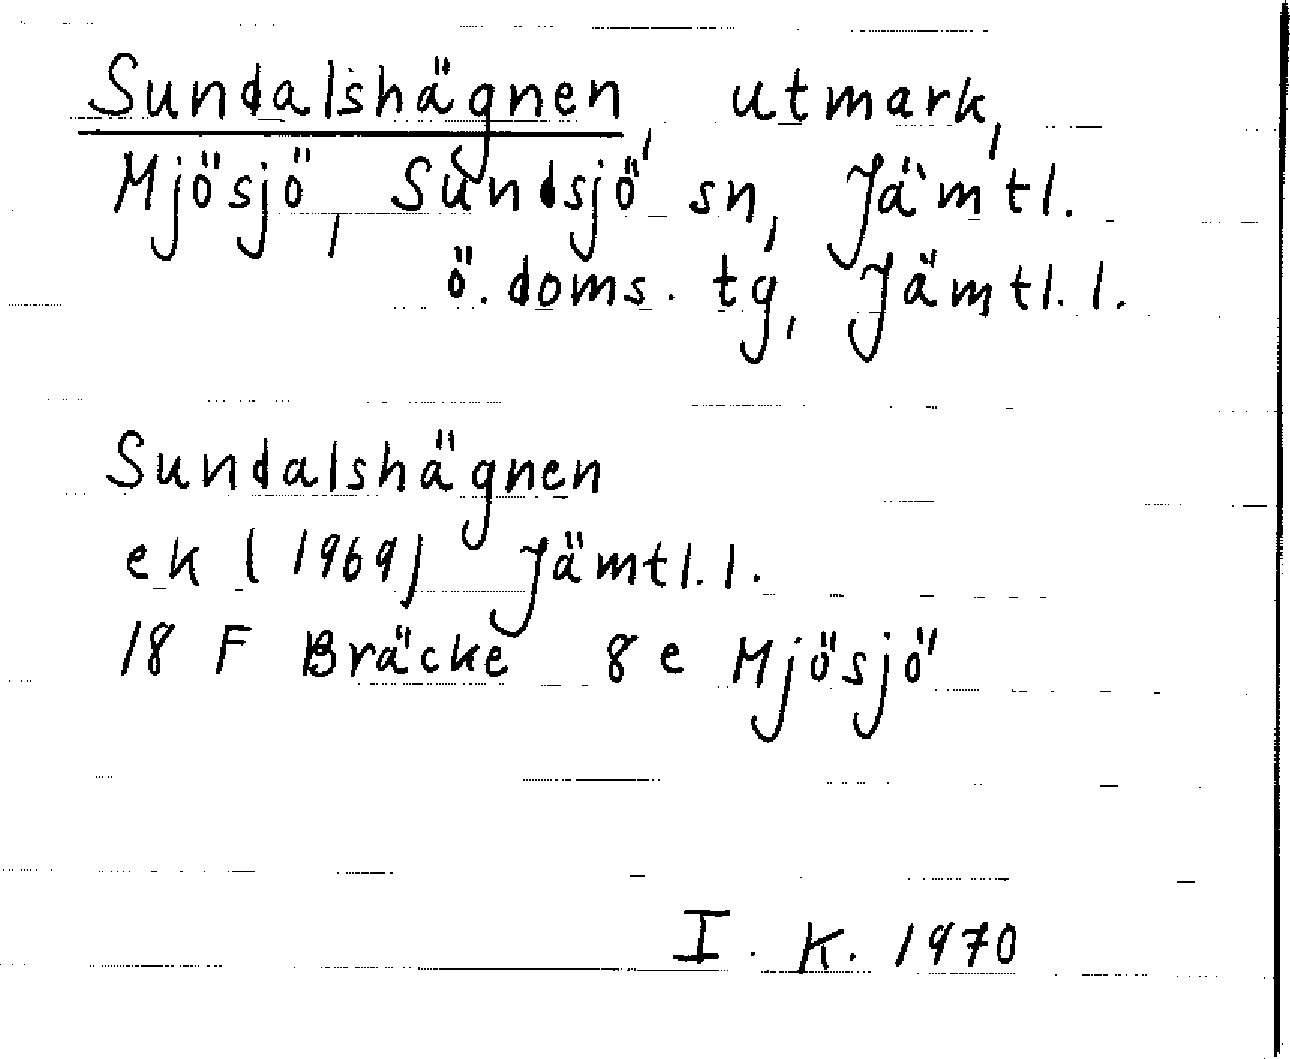 Sundalshägnen, utmark,
Mjösjö, Sundsjö sn, Jämtl.
ö. doms. tg, Jämtl. l.
Sundalshägnen
ek (1969) Jämtl. l.
18 F Bräcke 8 e Mjösjö
I. K. 1970